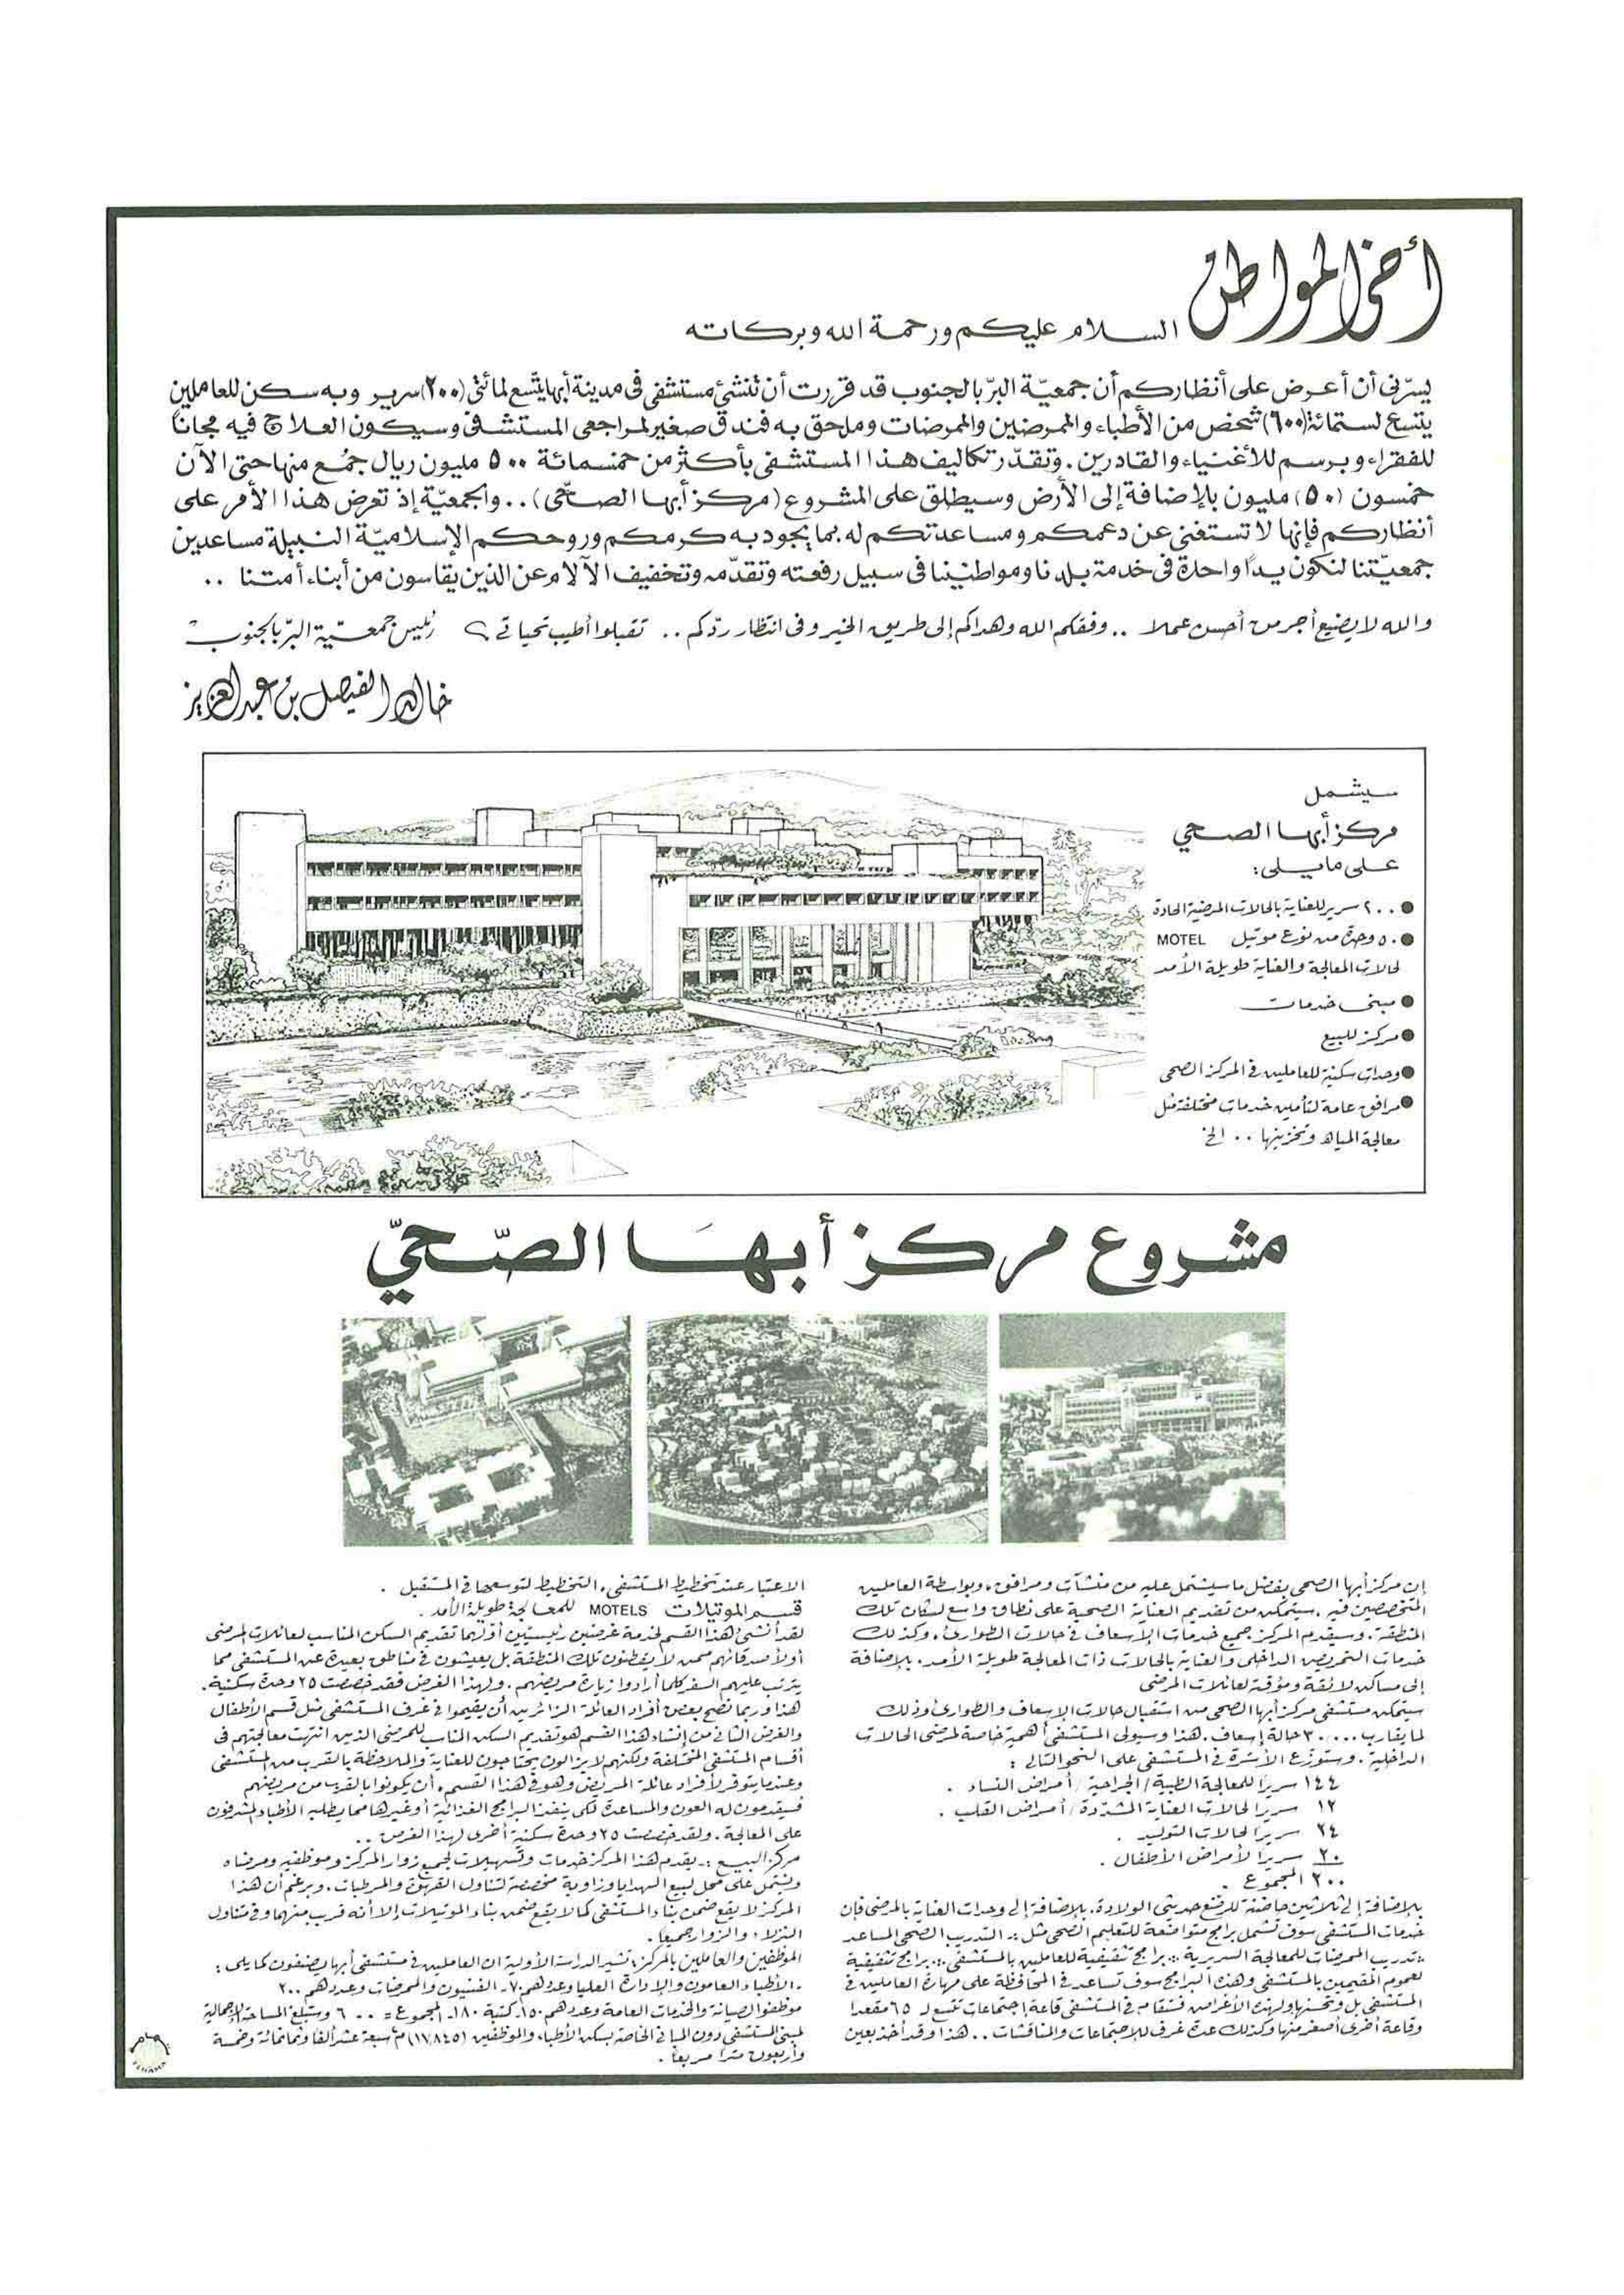 أخي المواطن
السلام عليكم ورحمة الله وبركاته
يسرّني أن أعرض على أنظاركم أن جمعيّة البرّ بالجنوب قد قررت أن تنشئ مستشفى في مدينة أبها يتّسع لمائتي (٢٠٠) سرير وبه سكن للعاملين
يتسع لستمائة (٦٠٠) شخص من الأطباء والممرضين والممرضات وملحق به فندق صغير لمراجعي المستشفى وسيكون العلاج فيه مجاناً
للفقراء وبرسم للأغنياء والقادرين. وتقدّر تكاليف هذا المستشفى بأكثر من خمسمائة ٥٠٠ مليون ريال جُمع منها حتى الآن
خمسون (٥٠) مليون بالإضافة إلى الأرض وسيطلق على المشروع (مركز أبها الصحّي) .. والجمعيّة إذ تعرض هذا الأمر على
أنظاركم فإنها لا تستغني عن دعمكم ومساعدتكم له بما يجود به كرمكم وروحكم الإسلاميّة النبيلة مساعدين
جمعيّتنا لنكون يداً واحدة في خدمة بلدنا ومواطنينا في سبيل رفعته وتقدّمه وتخفيف الآلام عن الذين يقاسون من أبناء أمتنا ..
والله لا يضيع أجر من أحسن عملا .. وفقكم الله وهداكم إلى طريق الخير وفي انتظار ردّكم .. تقبلوا أطيب تحياتي، رئيس جمعيّة البرّ بالجنوب
خالد الفيصل بن عبدالعزيز
سيشمل
مركز أبها الصحي
على مايلي:
● ٢٠٠ سرير للعناية بالحالات المرضية الحادة
● ٥٠ وحدة من نوع موتيل MOTEL
لحالات المعالجة والعناية طويلة الأمد
● مبنى خدمات
● مركز للبيع
● وحدات سكنية للعاملين في المركز الصحي
● مرافق عامة لتأمين خدمات مختلفة مثل
معالجة المياه وتخزينها .. الخ
مشروع مركز أبها الصّحيّ
إن مركز أبها الصحي بفضل ما سيشتمل عليه من منشآت ومرافق، وبواسطة العاملين
المتخصصين فيه، سيتمكن من تقديم العناية الصحية على نطاق واسع لسكان تلك
المنطقة. وسيقدم المركز جميع خدمات الإسعاف في حالات الطوارئ، وكذلك
خدمات التمريض الداخلي والعناية بالحالات ذات المعالجة طويلة الأمد. بالإضافة
إلى مساكن لائقة ومؤقتة لعائلات المرضى
سيتمكن مستشفى مركز أبها الصحي من استقبال حالات الإسعاف والطوارئ وذلك
لما يقارب ٣٠,٠٠٠ حالة إسعاف. هذا وسيولي المستشفى أهمية خاصة لمرضى الحالات
الداخلية. وستوزع الأسرّة في المستشفى على النحو التالي :
١٤٤ سريراً للمعالجة الطبية / الجراحية / أمراض النساء .
١٢ سريراً لحالات العناية المشدّدة / أمراض القلب .
٢٤ سريراً لحالات التوليد .
٢٠ سريراً لأمراض الأطفال .
٢٠٠ المجموع .
بالإضافة إلى ثلاثين حاضنة للرضّع حديثي الولادة، بالإضافة إلى وحدات العناية بالمرضى فإن
خدمات المستشفى سوف تشمل برامج متواضعة للتعليم الصحي مثل :- التدريب الصحي المساعد
:- تدريب الممرضات للمعالجة السريرية :- برامج تثقيفية للعاملين بالمستشفى :- برامج تثقيفية
لعموم المقيمين بالمستشفى وهذه البرامج سوف تساعد في المحافظة على مهارة العاملين في
المستشفى بل وتحسنها ولهذه الأغراض فستقام في المستشفى قاعة اجتماعات تتسع لـ ٦٥ مقعداً
وقاعة أخرى أصغر منها وكذلك عدة غرف للاجتماعات والمناقشات .. هذا وقد أخذ بعين
الاعتبار عند تخطيط المستشفى، التخطيط لتوسعها في المستقبل .
قسم الموتيلات MOTELS للمعالجة طويلة الأمد .
لقد أنشئ هذا القسم لخدمة غرضين رئيسيين أولهما تقديم السكن المناسب لعائلات المرضى
أولأصدقائهم ممن لا يقطنون تلك المنطقة بل يعيشون في مناطق بعيدة عن المستشفى مما
يترتب عليهم السفر كلما أرادوا زيارة مريضهم. ولهذا الغرض فقد خصصت ٢٥ وحدة سكنية.
هذا وربما نصح بعض أفراد العائلة الزائرين أن يقيموا في غرف المستشفى مثل قسم الأطفال
والغرض الثاني من إنشاء هذا القسم هو تقديم السكن المناسب للمرضى الذين انتهت معالجتهم في
أقسام المستشفى المختلفة ولكنهم لا يزالون يحتاجون للعناية والملاحظة بالقرب من المستشفى
وعندما يتوفر لأفراد عائلة المريض وهو في هذا القسم، أن يكونوا بالقرب من مريضهم
فسيقدمون له العون والمساعدة لكي ينفذ البرامج الغذائية أو غيرها مما يطلبه الأطباء المشرفون
على المعالجة. ولقد خصصت ٢٥ وحدة سكنية أخرى لهذا الغرض ..
مركز البيع :- يقدم هذا المركز خدمات وتسهيلات لجميع زوار المركز وموظفيه ومرضاه
ويشتمل على محل لبيع الهدايا وزاوية مخصصة لتناول القهوة والمرطبات. وبرغم أن هذا
المركز لا يقع ضمن بناء المستشفى كما لا يقع ضمن بناء الموتيلات إلا أنه قريب منهما وفي متناول
النزلاء والزوار جميعاً .
الموظفين والعاملين بالمركز: تشير الدراسة الأولية ان العاملين في مستشفى أبها يصنفون كما يلي :
- الأطباء العامون والإدارة العليا وعددهم ٧٠- الفنيون والممرضات وعددهم ٢٠٠
موظفو الصيانة والخدمات العامة وعددهم ١٥٠- كتبة ١٨٠- المجموع = ٦٠٠ وستبلغ المساحة الإجمالية
لمبنى المستشفى دون المباني الخاصة بسكن الأطباء والموظفين (١٧,٨٤٥) م٢ سبعة عشر ألفا وثمانمائة وخمسة
وأربعون متراً مربعاً .
تهامة
TIHAMA